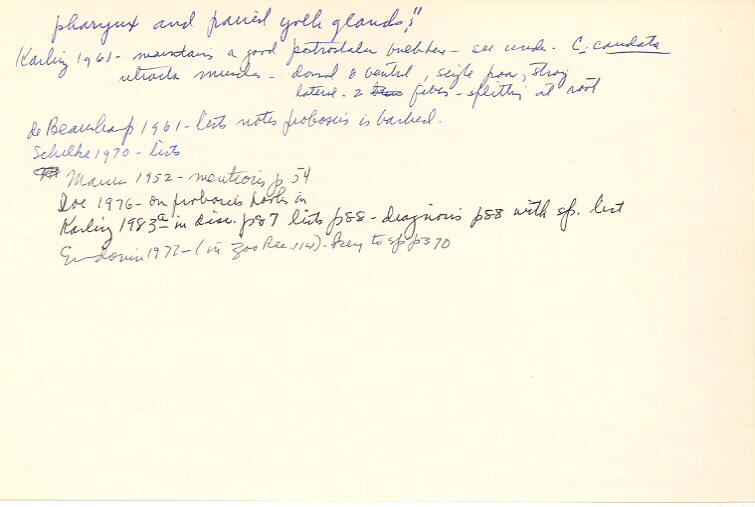 pharynx and paired yolk glands;"
Karling 1961 - maintains a good - see under C. caudata
retractor muscles - dorsal & ventral, single pair, strong
lateral - 2 fibers - splitting at root
de Beauchamp 1961 - lists notes proboscis is barbed.
Schilke 1970 - lists
Marcus 1952 - mentions p 54
Doe 1976 - on proboscis hooks in
Karling 1983a in disc. p87 lists p88 - diagnosis p88 with sp. list
1977 - (in Zoo Rec. 114). key to sp p370